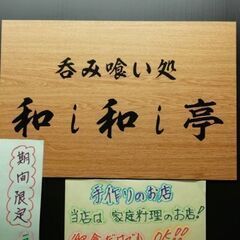 呑み喰い処
和い和い亭
期間限定
手作りのお店
当店は 家庭料理のお店!